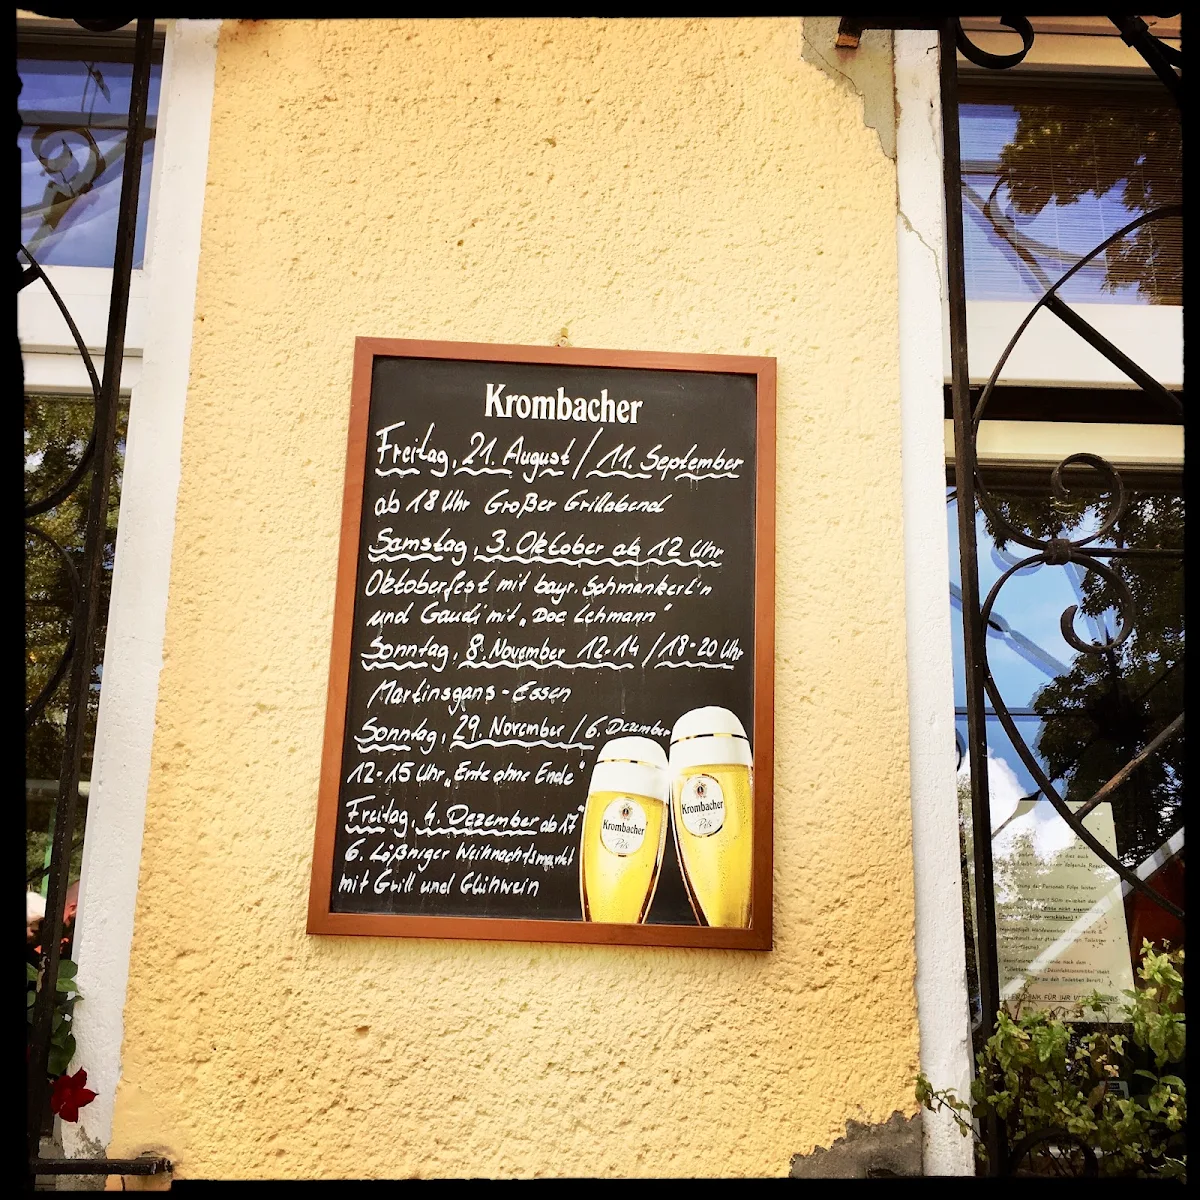 Krombacher
Freitag, 21. August / 11. September
ab 18 Uhr Großer Grillabend
Samstag, 3. Oktober ab 12 Uhr
Oktoberfest mit bayr. Schmankerl'n
und Gaudi mit „Doc Lehmann"
Sonntag, 8. November 12-14 / 18-20 Uhr
Martinsgans-Essen
Sonntag, 29. November / 6. Dezember
12-15 Uhr „Ente ohne Ende"
Freitag, 4. Dezember ab 17
6. Lößniger Weihnachtsmarkt
mit Grill und Glühwein
Krombacher
Pils
Krombacher
Pils
folgende Regeln
DANK FÜR IHR